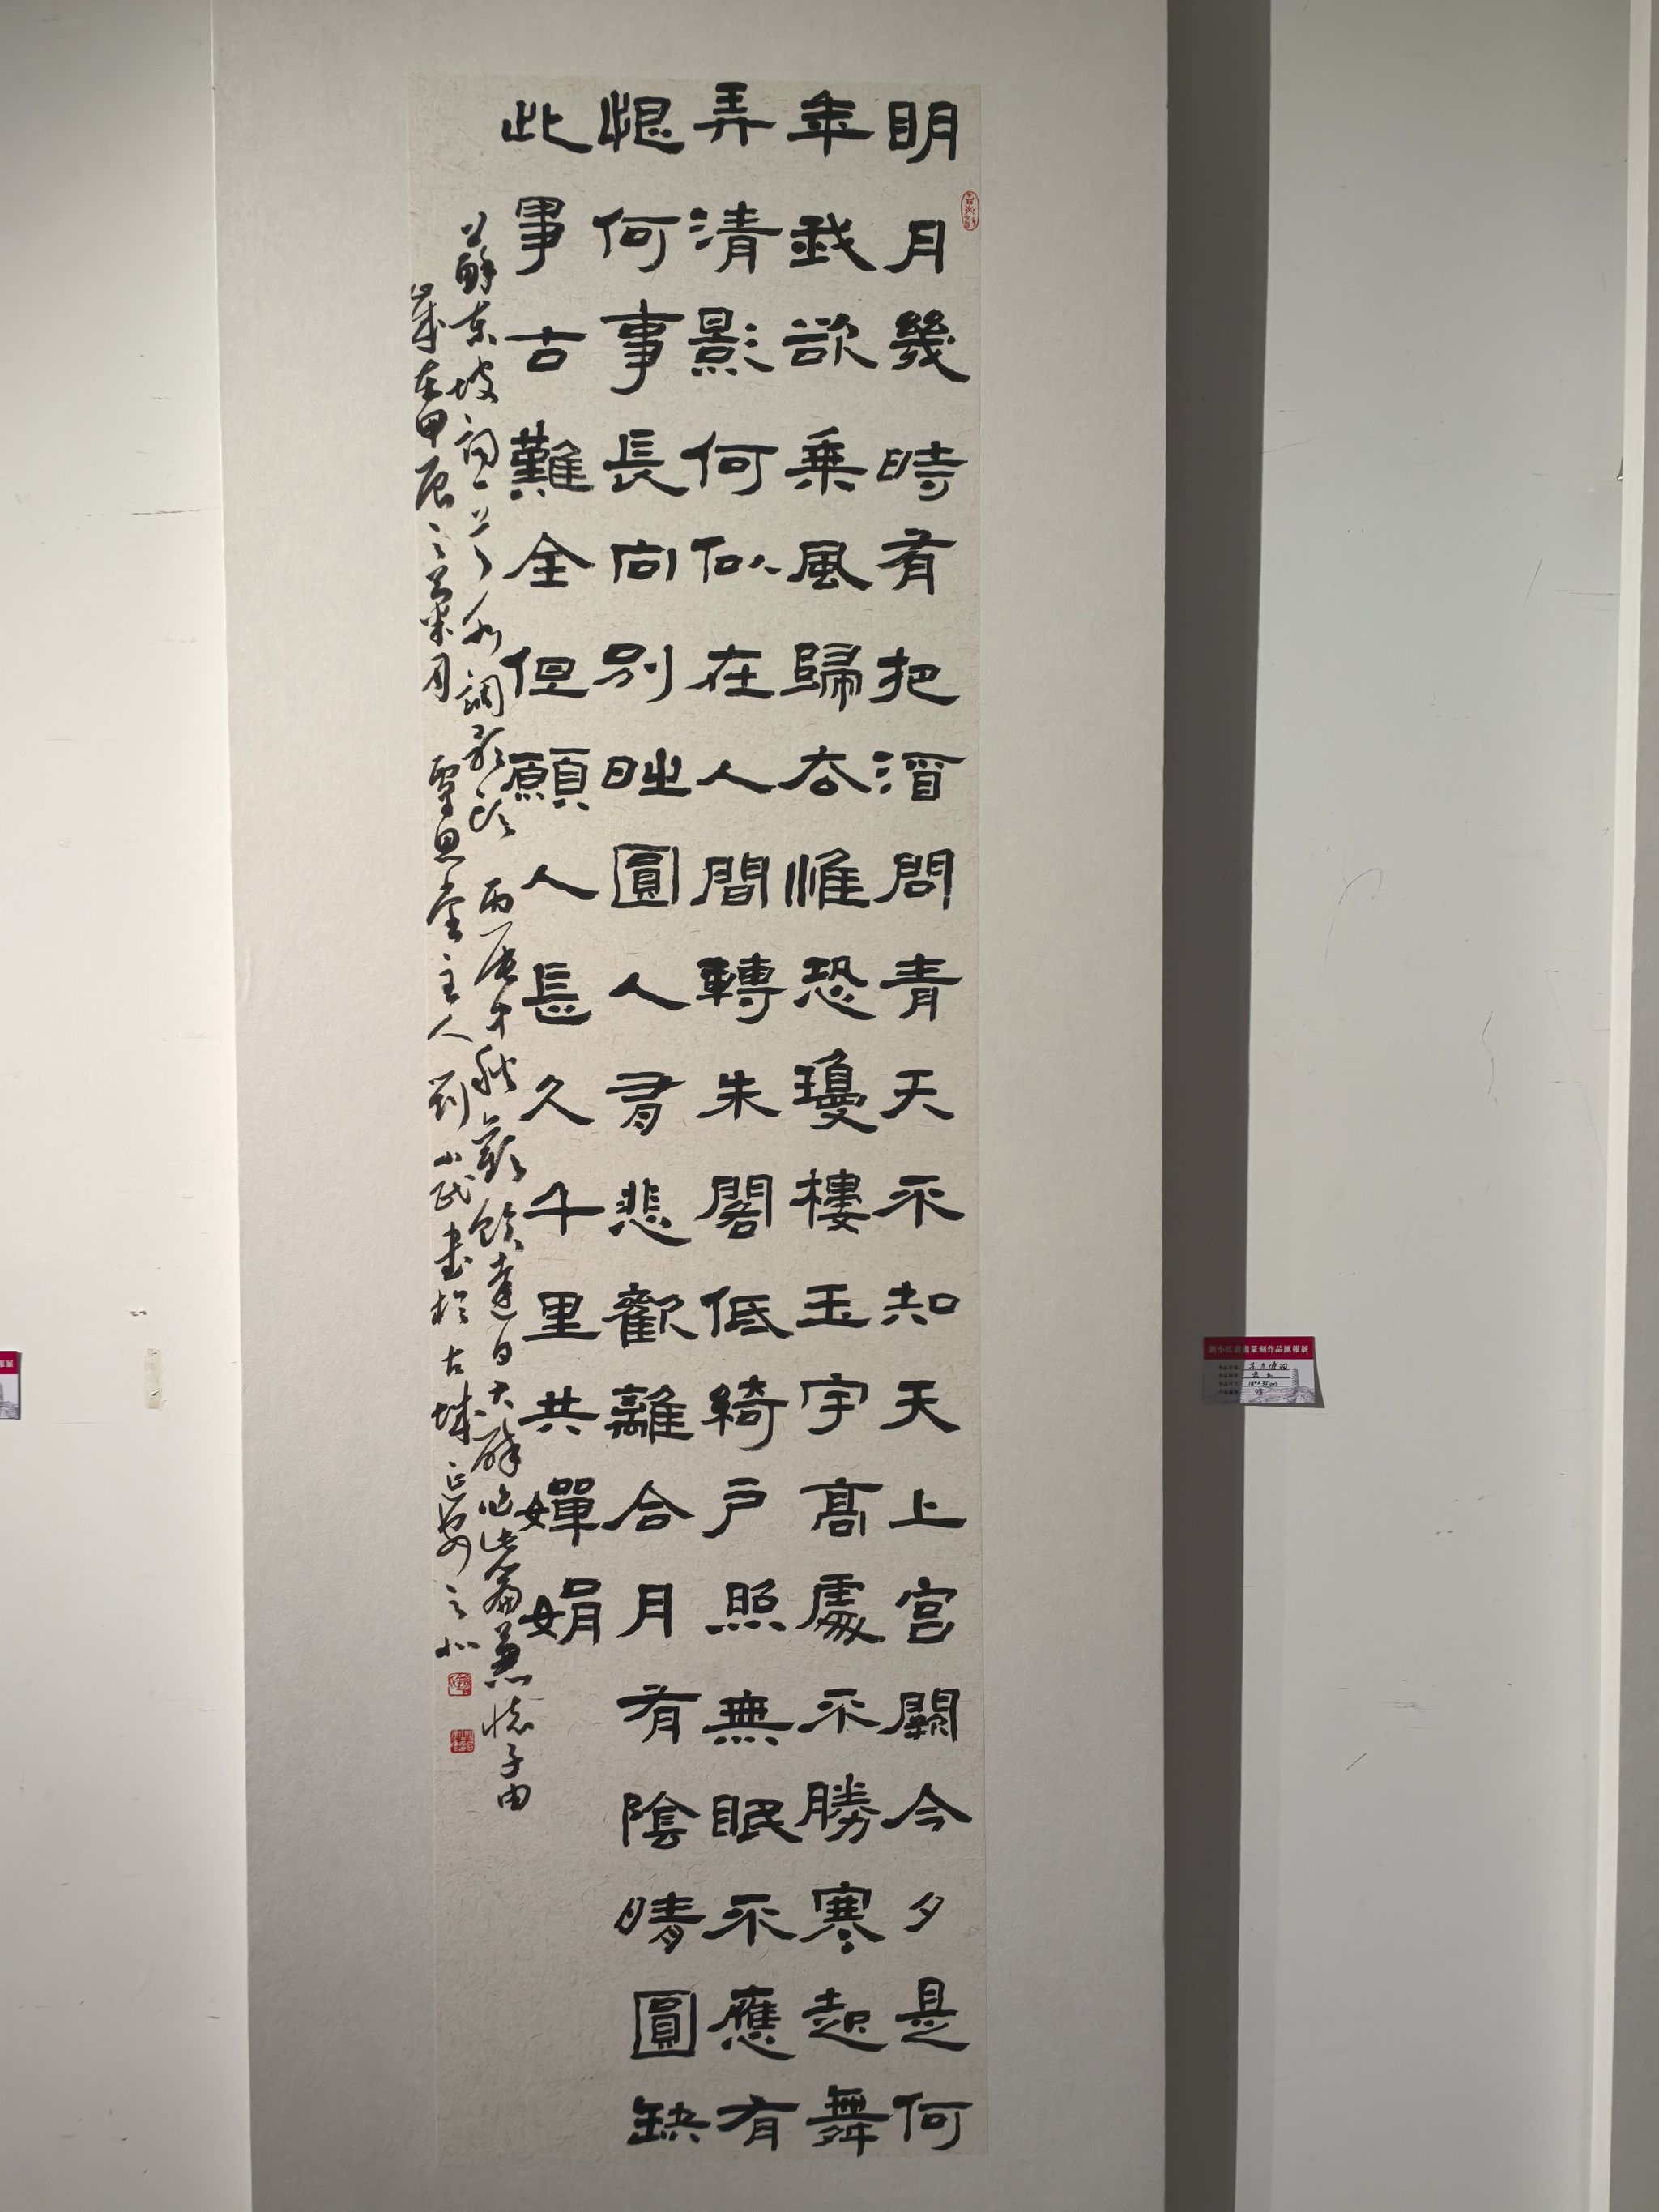 明月幾時有把酒問青天不知天上宮闕今夕是何
年我欲乘風歸去惟恐瓊樓玉宇高處不勝寒起舞
弄清影何似在人間轉朱閣低綺戶照無眠不應有
恨何事長向別時圓人有悲歡離合月有陰晴圓缺
此事古難全但願人長久千里共嬋娟
蘇東坡詞一首水調歌頭 丙辰中秋歡飲達旦大醉作此篇兼懷子由
歲在甲辰之菊月 雪思堂主人劉小民書於古城之北
劉小民書畫篆刻作品匯報展